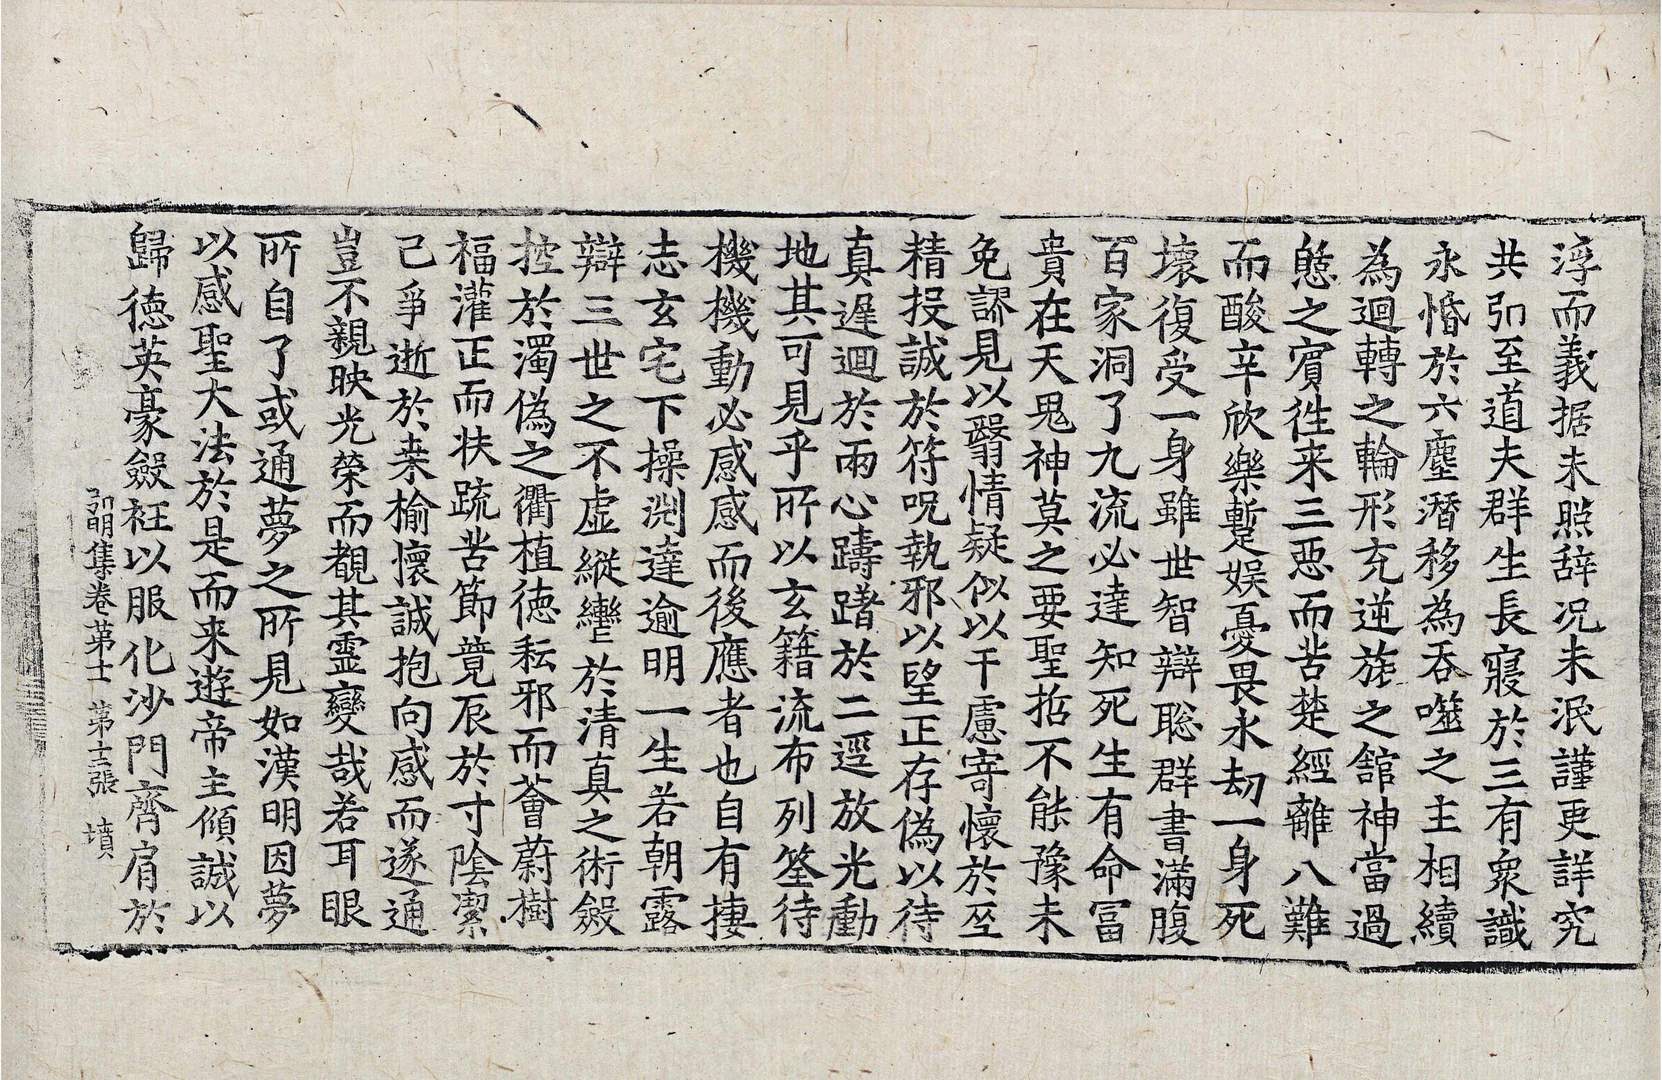 淳而義据未照辞况未泯謹更詳究
共弘至道夫群生長寢於三有衆識
永惛於六塵潛移為吞噬之主相續
為迴轉之輪形充逆旅之舘神當過
憩之賓徃来三惡而苦楚經離八難
而酸辛欣樂蹔娛憂畏永劫一身死
壞復受一身雖世智辯聡群書滿腹
百家洞了九流必達知死生有命冨
貴在天鬼神莫之要聖哲不能豫未
免謬見以翳情疑似以干慮寄懷於巫
精投誠於符呪執邪以望正存偽以待
真遲迴於兩心躊躇於二逕放光動
地其可見乎所以玄籍流布列筌待
機機動必感感而後應者也自有捿
志玄宅下操渕達逾明一生若朝露
辯三世之不虛縱轡於清真之術斂
控於濁偽之衢植徳耘邪而薈蔚樹
福灌正而扶疏苦節競辰於寸陰潔
己爭逝於桒榆懷誠抱向感而遂通
豈不親映光榮而覩其霊變哉若耳眼
所自了或通夢之所見如漢明因夢
以感聖大法於是而来遊帝主傾誠以
歸徳英豪斂衽以服化沙門齊肩於
弘明集卷苐十一 苐十三張 墳